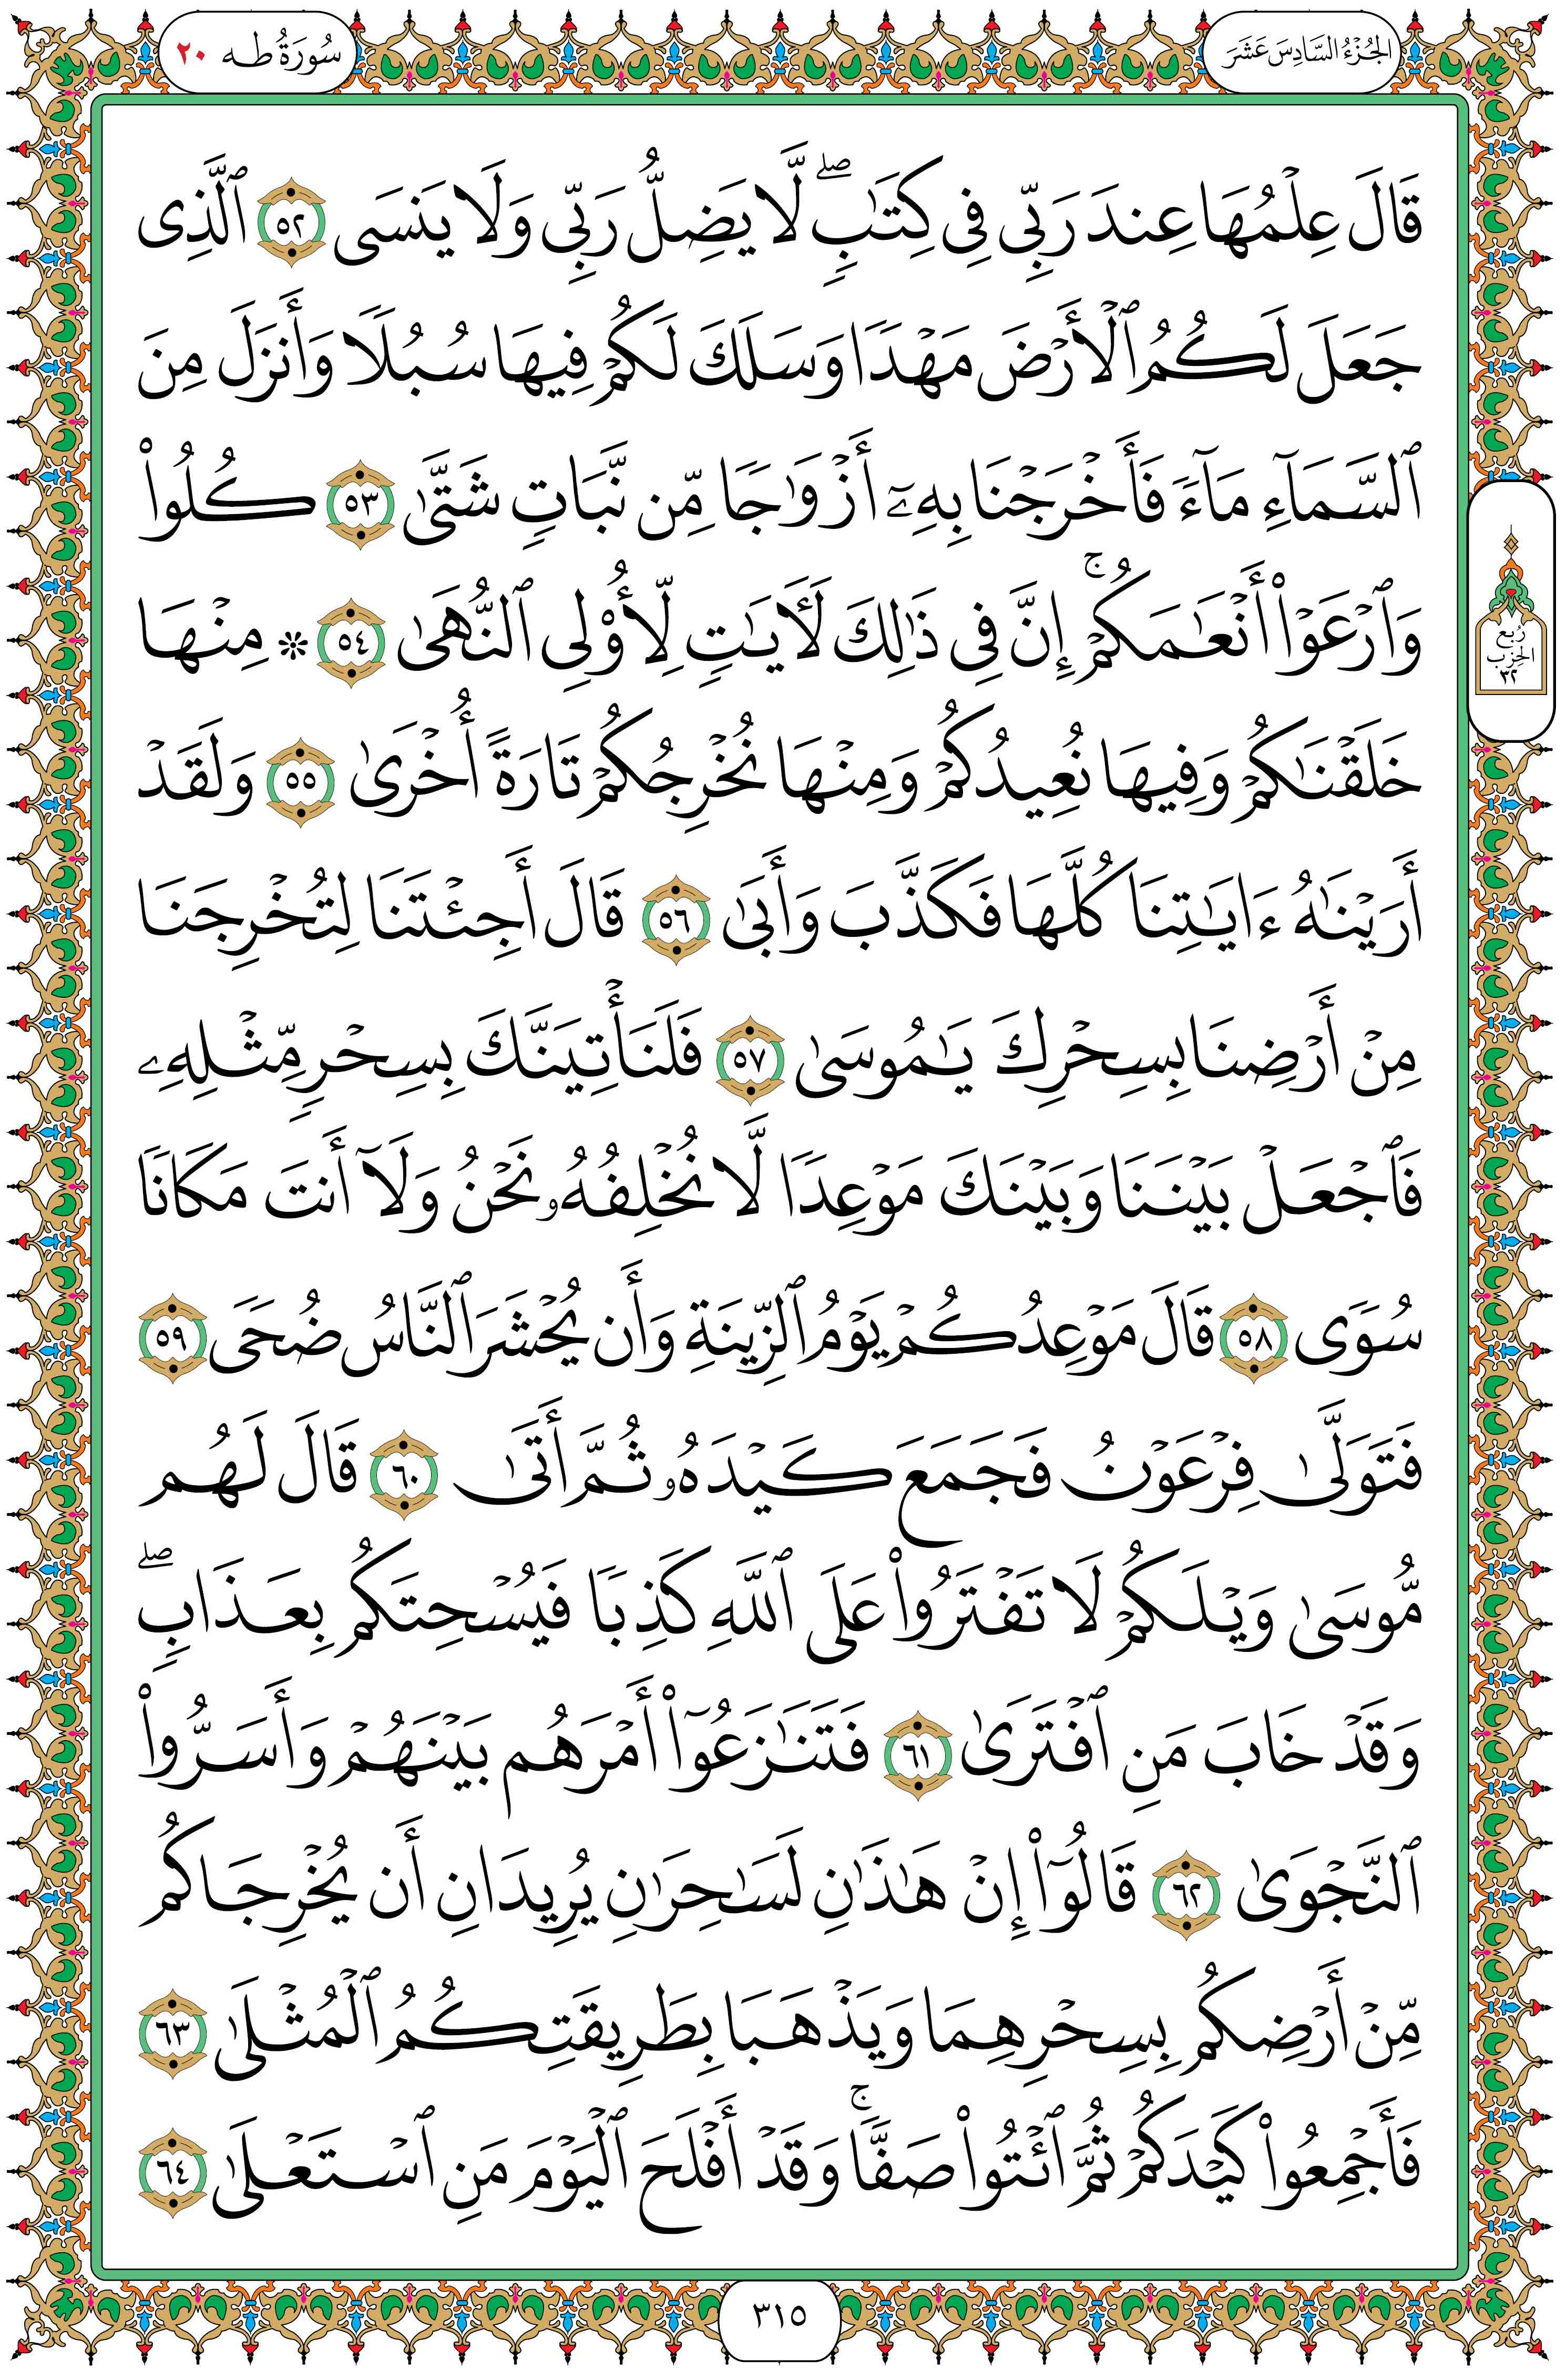 الجُزْءُ السَّادِسَ عَشَرَ
سُورَةُ طه ٢٠
قَالَ عِلْمُهَا عِندَ رَبِّى فِى كِتَٰبٍۢ ۖ لَّا يَضِلُّ رَبِّى وَلَا يَنسَى ٥٢ ٱلَّذِى
جَعَلَ لَكُمُ ٱلْأَرْضَ مَهْدًا وَسَلَكَ لَكُمْ فِيهَا سُبُلًا وَأَنزَلَ مِنَ
ٱلسَّمَآءِ مَآءً فَأَخْرَجْنَا بِهِۦٓ أَزْوَٰجًا مِّن نَّبَاتٍ شَتَّىٰ ٥٣ كُلُوا۟
وَٱرْعَوْا۟ أَنْعَٰمَكُمْ ۗ إِنَّ فِى ذَٰلِكَ لَءَايَٰتٍ لِّأُو۟لِى ٱلنُّهَىٰ ٥٤ ۞ مِنْهَا
رُبع
الحِزب
٣٢
خَلَقْنَٰكُمْ وَفِيهَا نُعِيدُكُمْ وَمِنْهَا نُخْرِجُكُمْ تَارَةً أُخْرَىٰ ٥٥ وَلَقَدْ
أَرَيْنَٰهُ ءَايَٰتِنَا كُلَّهَا فَكَذَّبَ وَأَبَىٰ ٥٦ قَالَ أَجِئْتَنَا لِتُخْرِجَنَا
مِنْ أَرْضِنَا بِسِحْرِكَ يَٰمُوسَىٰ ٥٧ فَلَنَأْتِيَنَّكَ بِسِحْرٍ مِّثْلِهِۦ
فَٱجْعَلْ بَيْنَنَا وَبَيْنَكَ مَوْعِدًا لَّا نُخْلِفُهُۥ نَحْنُ وَلَآ أَنتَ مَكَانًا
سُوًى ٥٨ قَالَ مَوْعِدُكُمْ يَوْمُ ٱلزِّينَةِ وَأَن يُحْشَرَ ٱلنَّاسُ ضُحًى ٥٩
فَتَوَلَّىٰ فِرْعَوْنُ فَجَمَعَ كَيْدَهُۥ ثُمَّ أَتَىٰ ٦٠ قَالَ لَهُم
مُّوسَىٰ وَيْلَكُمْ لَا تَفْتَرُوا۟ عَلَى ٱللَّهِ كَذِبًا فَيُسْحِتَكُم بِعَذَابٍ ۖ
وَقَدْ خَابَ مَنِ ٱفْتَرَىٰ ٦١ فَتَنَٰزَعُوٓا۟ أَمْرَهُم بَيْنَهُمْ وَأَسَرُّوا۟
ٱلنَّجْوَىٰ ٦٢ قَالُوٓا۟ إِنْ هَٰذَٰنِ لَسَٰحِرَٰنِ يُرِيدَانِ أَن يُخْرِجَاكُم
مِّنْ أَرْضِكُم بِسِحْرِهِمَا وَيَذْهَبَا بِطَرِيقَتِكُمُ ٱلْمُثْلَىٰ ٦٣
فَأَجْمِعُوا۟ كَيْدَكُمْ ثُمَّ ٱئْتُوا۟ صَفًّا ۚ وَقَدْ أَفْلَحَ ٱلْيَوْمَ مَنِ ٱسْتَعْلَىٰ ٦٤
٣١٥